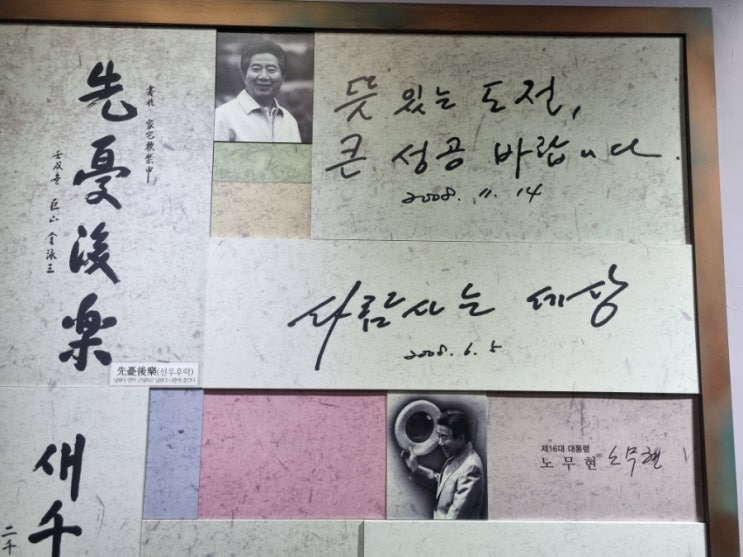 先憂後樂
書於 家宅軟禁中
壬戌春 巨山 金泳三
先憂後樂(선우후락)
뜻 있는 도전,
큰 성공 바랍니다.
2008. 11. 14
사람사는 세상
2008. 6. 5
제16대 대통령
노무현 노무현
새천
二千